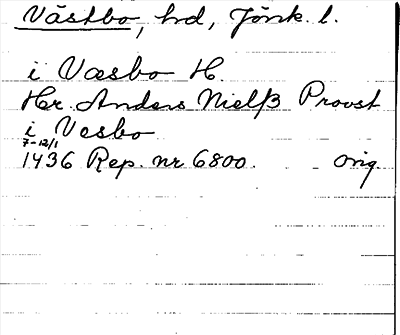 Västbo, hd, Jönk. l.
i Væsbo H.
Hr. Anders Nielß Provst
i Vesbo
7-12/1
1436 Rep. nr 6800. Orig.